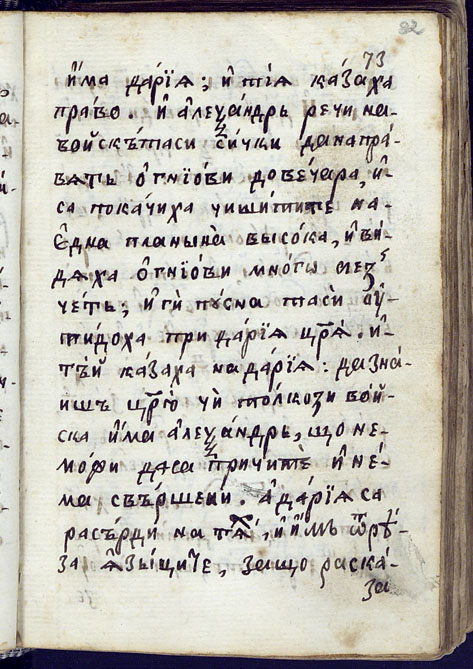 82
73
и҆́ма да́рїѧ; и҆ тїѧ ка́заха
пра́во. и҆ а҆леѯа́ндрь речи на
войскѣ́таси си́чки да напра́-
вѧть о҆гнїо́ви до ве́чара, и҆-
са пока́чиха чи
є҆дна планына̀ высо́ка, и҆ ви́-
дѧха о҆гнїо́ви мно́гѡ
че́ть; и҆ гѝ пꙋ́сна тасѝ ѿ-
тидо́ха при да́рїѧ цр҃ѧ̀. и҆-
тъ́й каза́ха на да́рїѧ: да зна́-
ишъ цр҃ю̀ чѝ толко́зи во́й-
ска и҆́ма а҆леѯа́ндрь, що не-
мо́жи даса причите́ и҆ не́-
ма свъ́ршени. а҆ да́рїѧ са
расъ́рди на тѧ́х, и҆ и҆́мъ ѿрѣ́-
за ѧ҆зы́ците, защо̀ раска́-
за